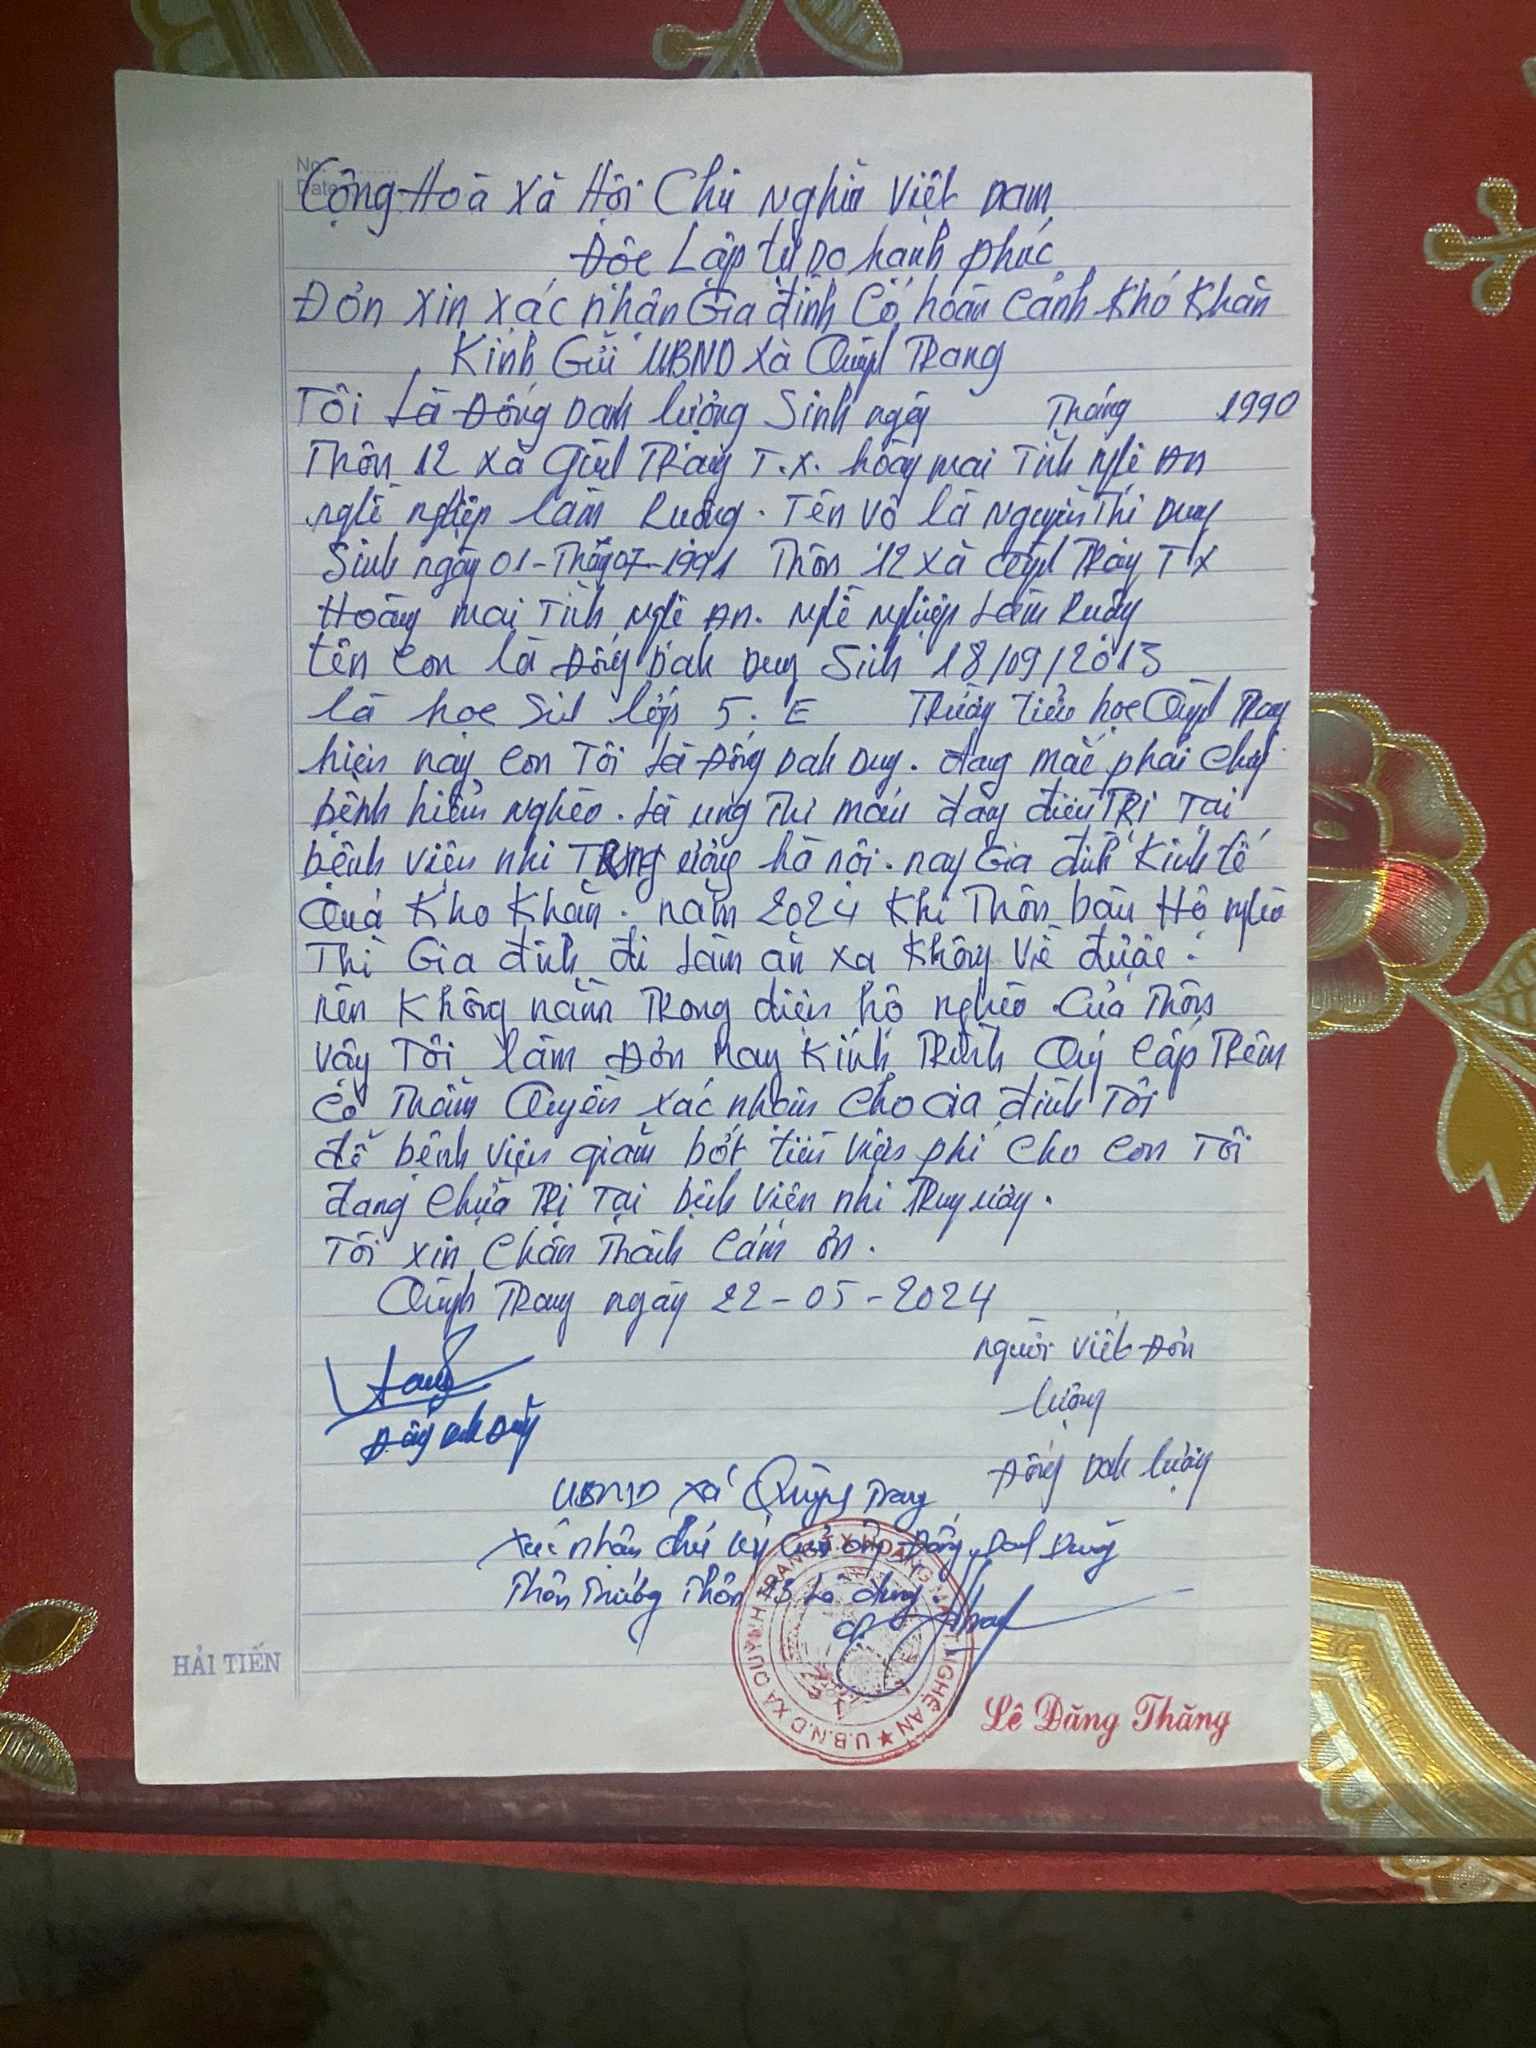 No. ..........
Date
Cộng Hoà Xã Hội Chủ Nghĩa Việt Nam
Độc Lập tự Do hạnh phúc
Đơn xin xác nhận Gia đình Có hoàn cảnh Khó Khăn
Kính Gửi UBND xã Quỳnh Trang
Tôi Là Đống Danh lượng Sinh ngày Tháng 1990
Thôn 12 xã Quỳnh Trang T.X. hoàng mai Tỉnh Nghệ An
nghề nghiệp làm Ruộng. Tên vỡ là Nguyễn Thị Duy
Sinh ngày 01-Tháng 07-1991 Thôn 12 xã Quỳnh Trang T X
Hoàng mai Tỉnh Nghệ An. Nghề Nghiệp Làm Ruộng
tên con là Đống Danh Duy Sinh 18/09/2013
là học Sinh lớp 5. E Trường Tiểu học Quỳnh Trang
hiện nay con Tôi Là Đống Danh Duy. đang mắc phải Chứng
bệnh hiểm nghèo. Là ung Thư máu đang điều TRị Tại
bệnh viện nhi TRung ương hà nội. nay Gia đình Kinh tế
Quá Kho Khăn. năm 2024 Khi Thôn bầu Hộ nghèo
Thì Gia đình đi Làm ăn xa Không Về được.
nên Không nằm Trong diện hộ nghèo Của Thôn
Vậy Tôi làm Đơn Nay Kính Trình Quý Cấp Trên
Có Thẩm Quyền xác nhận Cho Gia đình Tôi
để bệnh viện giảm bớt tiền Viện phí Cho Con Tôi
đang Chữa Trị Tại bệnh Viện nhi Trung ương.
Tôi xin Chân Thành Cảm ơn.
Quỳnh Trang ngày 22-05-2024
người viết Đơn
lượng
Đống Danh Lượng
UBND xã Quỳnh Trang
Xác nhận chữ ký của ông Đống Danh
Thôn Trưởng Thôn là đúng.
U.B.N.D XÃ QUỲNH TRANG T.X HOÀNG MAI T. NGHỆ AN
Lê Đăng Thăng
HẢI TIẾN